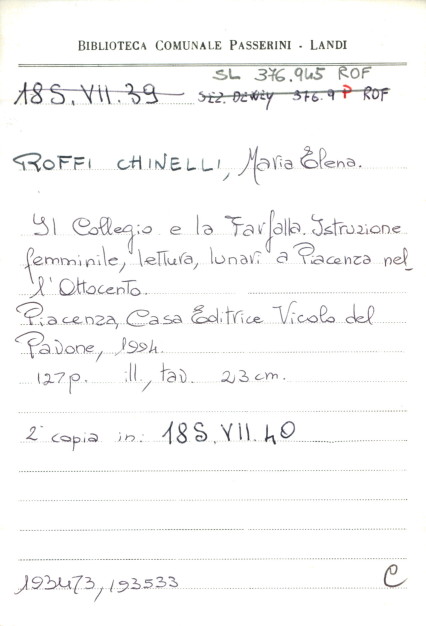 BIBLIOTECA COMUNALE PASSERINI - LANDI
SL 376.945 ROF
18S.VII.39 Sez. Dewey 376.9 P ROF
ROFFI CHINELLI, Maria Elena.
Il Collegio e la Farfalla. Istruzione
femminile, lettura, lunari a Piacenza nel
l'Ottocento.
Piacenza, Casa Editrice Vicolo del
Pavone, 1994.
127p. ill., tav. 23 cm.
2ª copia in: 18S.VII.40
193473, 193533 C